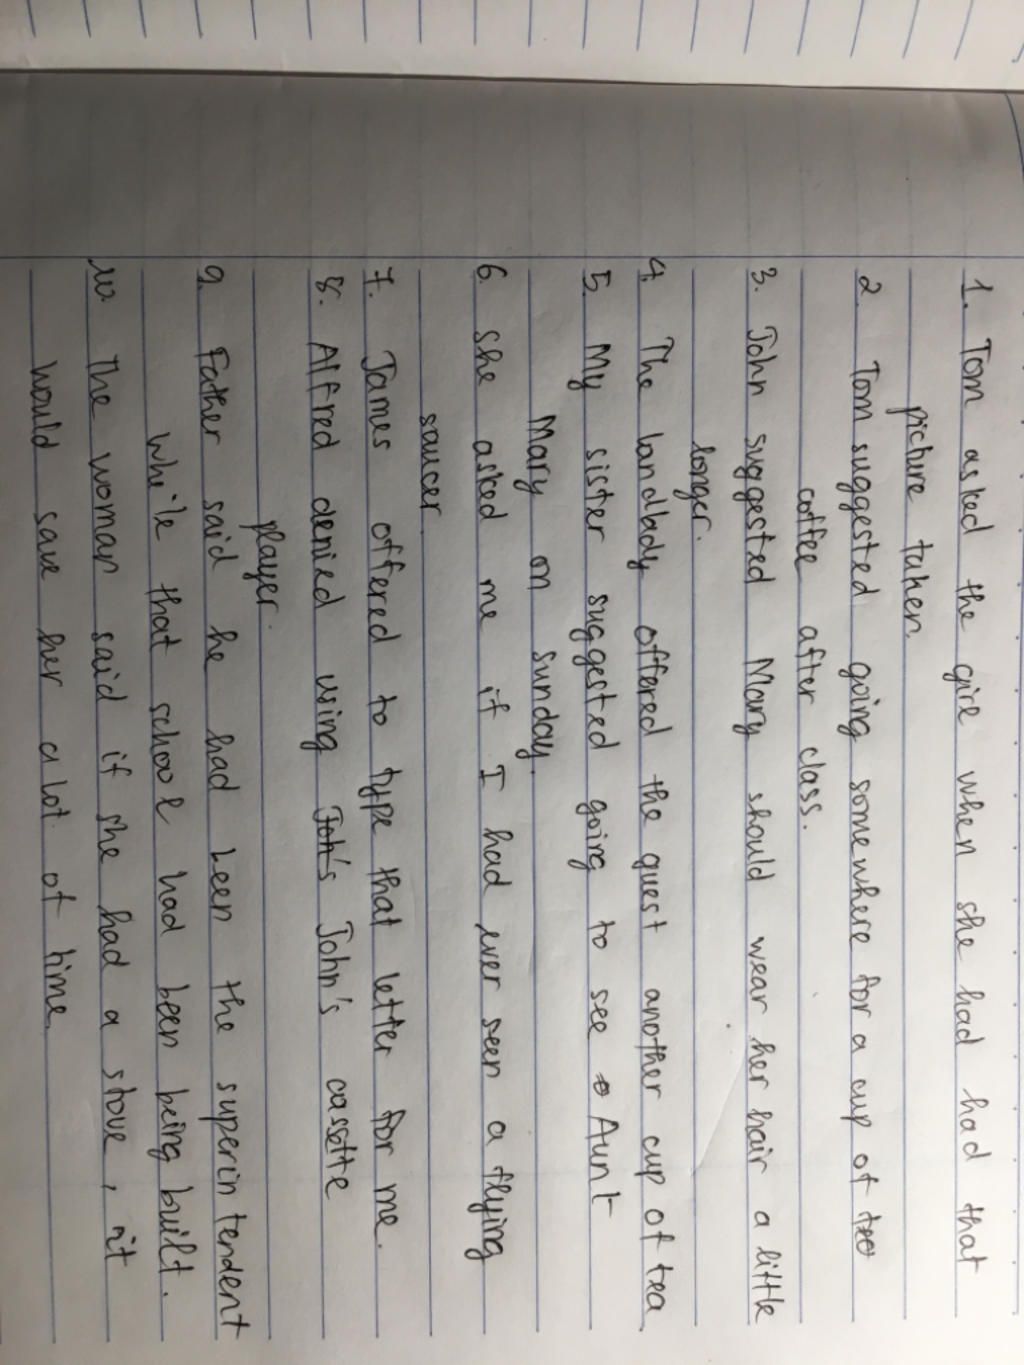 1. Tom asked the gire when she had had that
picture taken.
2 Tom suggested going somewhere for a cup of
coffee after class.
3. John suggested Mary should wear her hair a little
longer.
4. The landlady offered the guest another cup of tea
5. My sister suggested going to see Aunt
Mary on sunday.
6. she asked me if I had ever seen a flying
saucer.
7. James offered to type that letter for me.
8. Alfred denied using John's cassette
player.
9. Father said he had been the superintendent
while that school had been being built.
10. The woman said if she had a stove, it
would save her a lot of time.